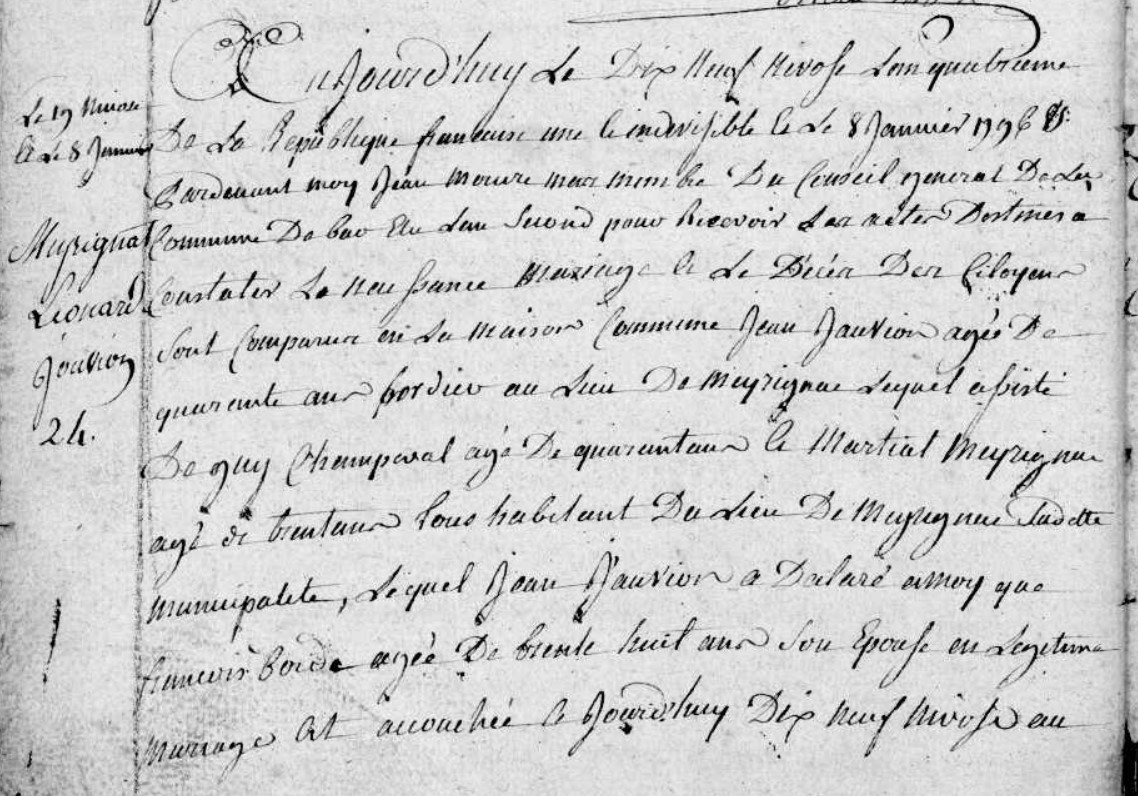 Le 19 Nivose
et Le 8 Janvier
Meyrignat
Léonard
Jauvion
24.
Aujourd'huy Le Dix Neuf Nivose Lan quatrieme
De La Republique francaise une et indivisible et Le 8 Janvier 1796 VS.
Pardevant moy Jean membre Du Conseil general De La
Commune De Elu Lan Second pour Recevoir Les actes Destines a
Constater La Naissance Mariage et Le Décés Des Citoyens
Sont Comparus en La Maison Commune Jean Jauvion agée De
quarente ans bordier au Lieu De Meyrignac Lequel assisté
De guy Champeval agé De quarantans et Martial Meyrignac
agé de trentans tous habitant Du Lieu De Meyrignac Susdette
Municipalite, Lequel Jean Jauvion a Dalaré amoy que
francois Borde agée De trente huit ans Son Epouse en Legetime
Marriage est acouchée Cejourd'huy Dix Neuf Nivose au